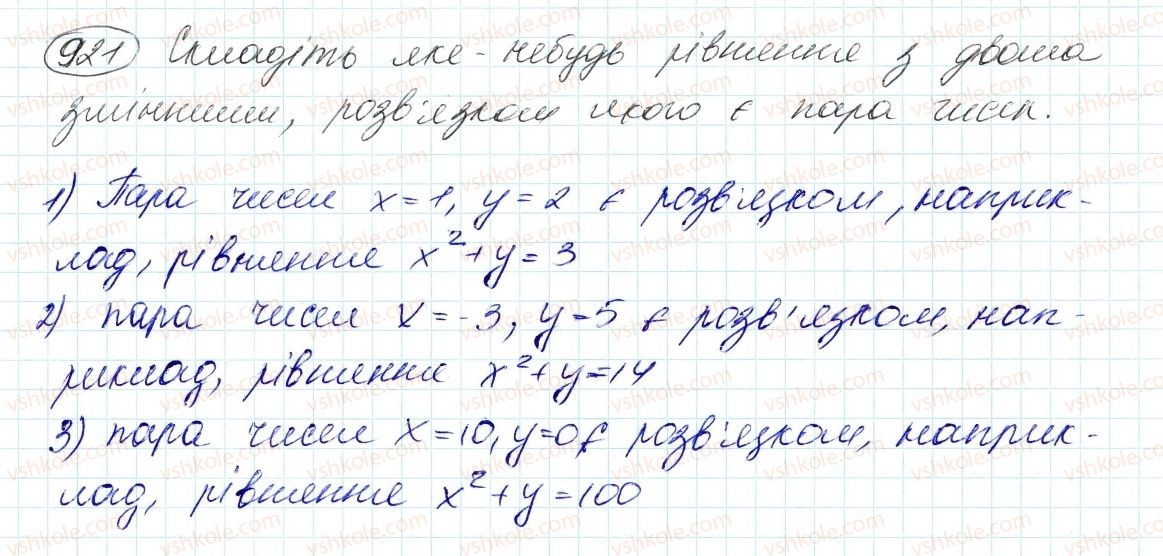 921 Складіть яке-небудь рівняння з двома
змінними, розв'язком якого є пара чисел.
1) Пара чисел x=1, y=2 є розв'язком, наприк-
лад, рівняння x²+y=3
2) пара чисел x=-3, y=5 є розв'язком, нап-
риклад, рівняння x²+y=14
3) пара чисел x=10, y=0 є розв'язком, наприк-
лад, рівняння x²+y=100